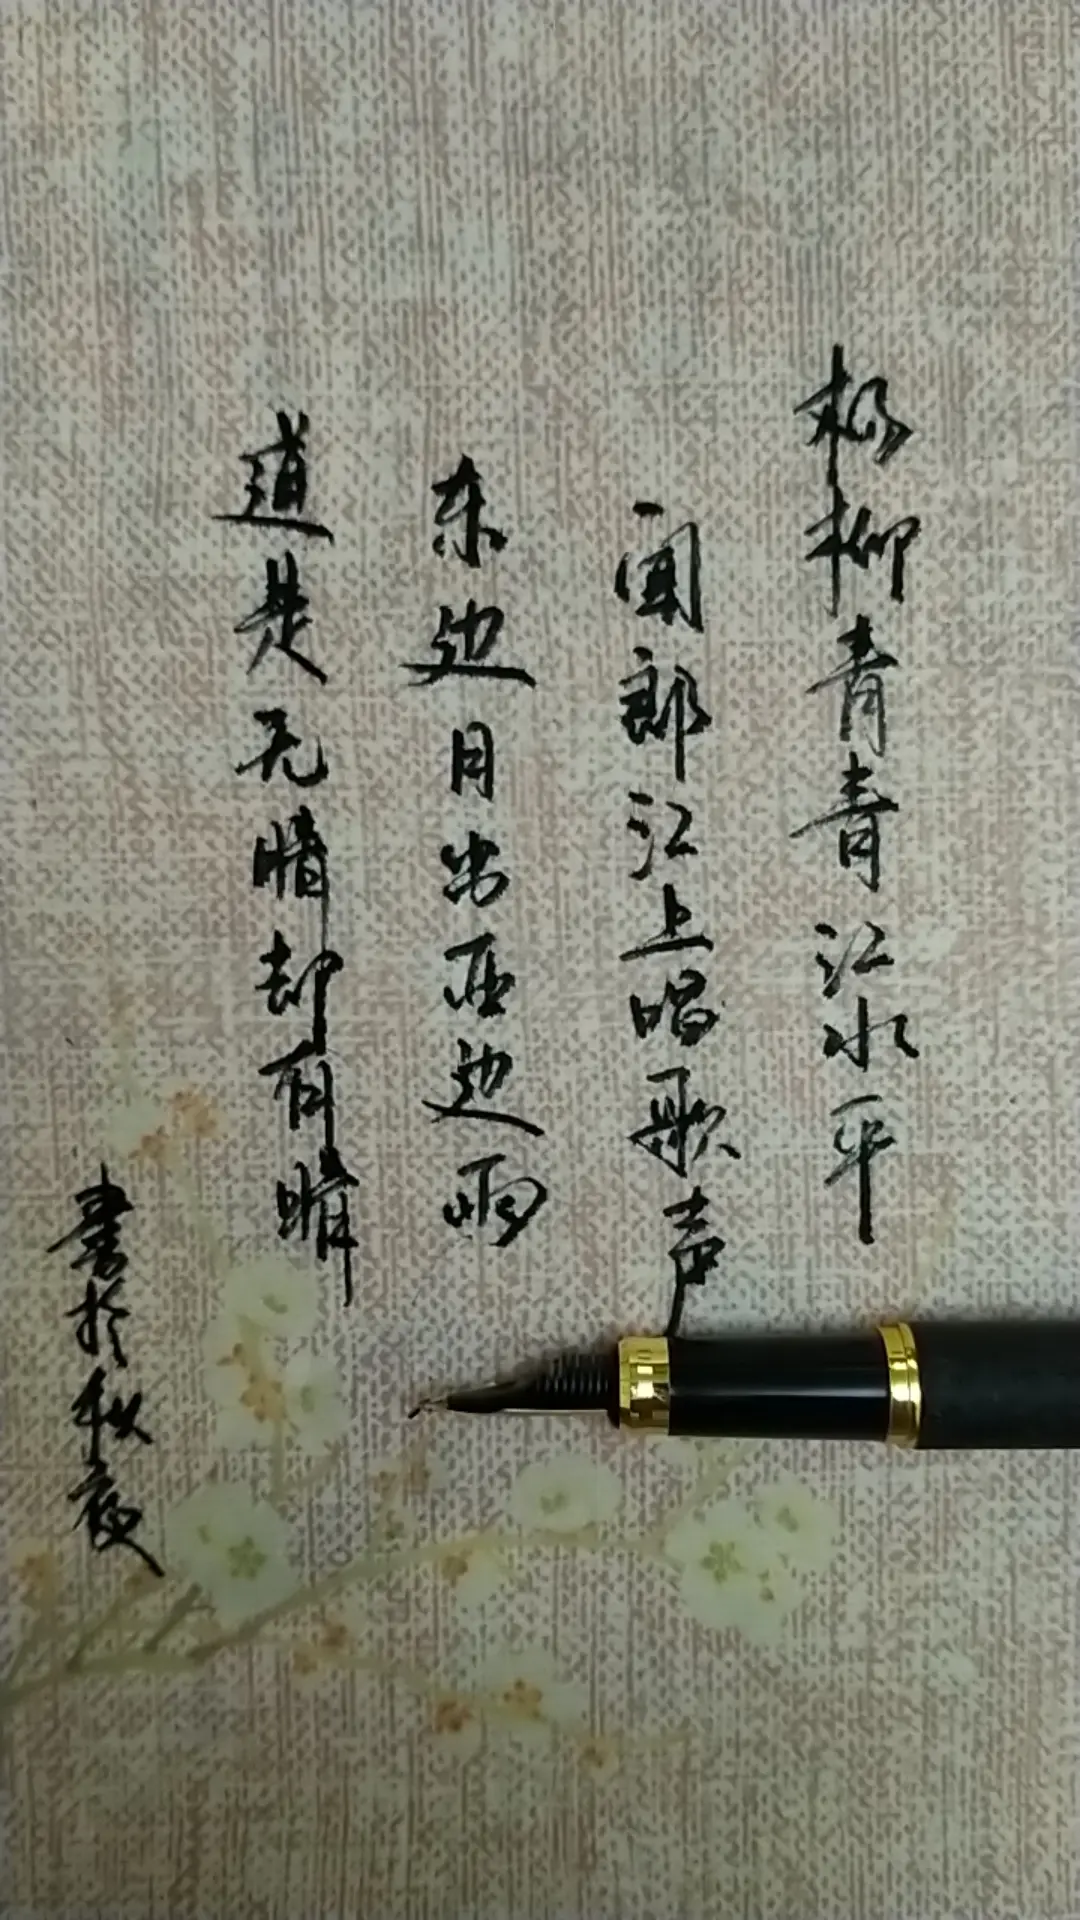 杨柳青青江水平
闻郎江上唱歌声
东边日出西边雨
道是无晴却有晴
書於秋夜